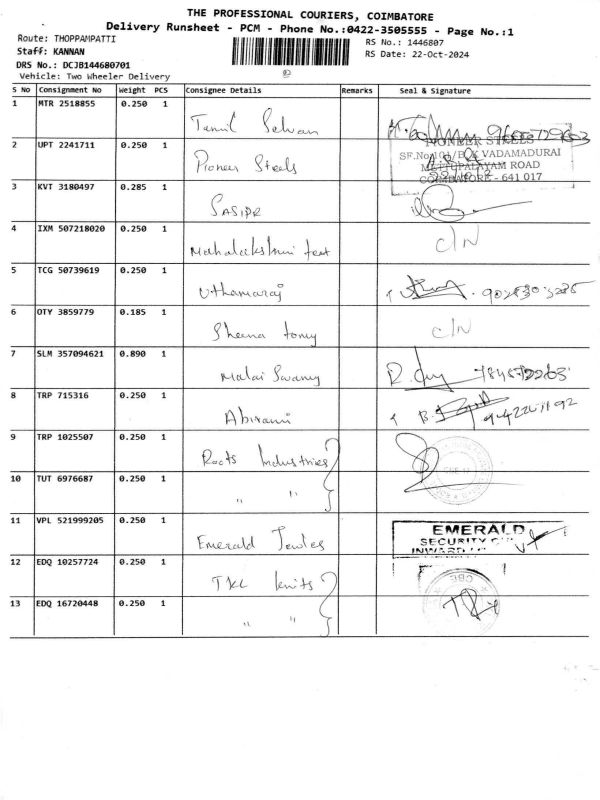 THE PROFESSIONAL COURIERS, COIMBATORE
Delivery Runsheet - PCM - Phone No.:0422-3505555 - Page No.:1
Route: THOPPAMPATTI
RS No.: 1446807
Staff: KANNAN
RS Date: 22-Oct-2024
DRS No.: DCJB144680701
Vehicle: Two Wheeler Delivery
S No Consignment No Weight PCS Consignee Details Remarks Seal & Signature
1 MTR 2518855 0.250 1 Tamil Selvan
2 UPT 2241711 0.250 1 Pioneer Steels
PIONEER STEELS
VADAMADURAI
METTUPALAYAM ROAD
COIMBATORE - 641 017
3 KVT 3180497 0.285 1
4 IXM 507218020 0.250 1 Mahalakshmi text C/N
5 TCG 50739619 0.250 1 Uthamaraj
6 OTY 3859779 0.185 1 Sheena tomy C/N
7 SLM 357094621 0.890 1 Malai Swamy
8 TRP 715316 0.250 1 Abirami
9 TRP 1025507 0.250 1 Roots Industries
10 TUT 6976687 0.250 1 " "
11 VPL 521999205 0.250 1 Emerald Jewles
EMERALD
SECURITY
INWARD
12 EDQ 10257724 0.250 1 TKL knits
13 EDQ 16720448 0.250 1 " "